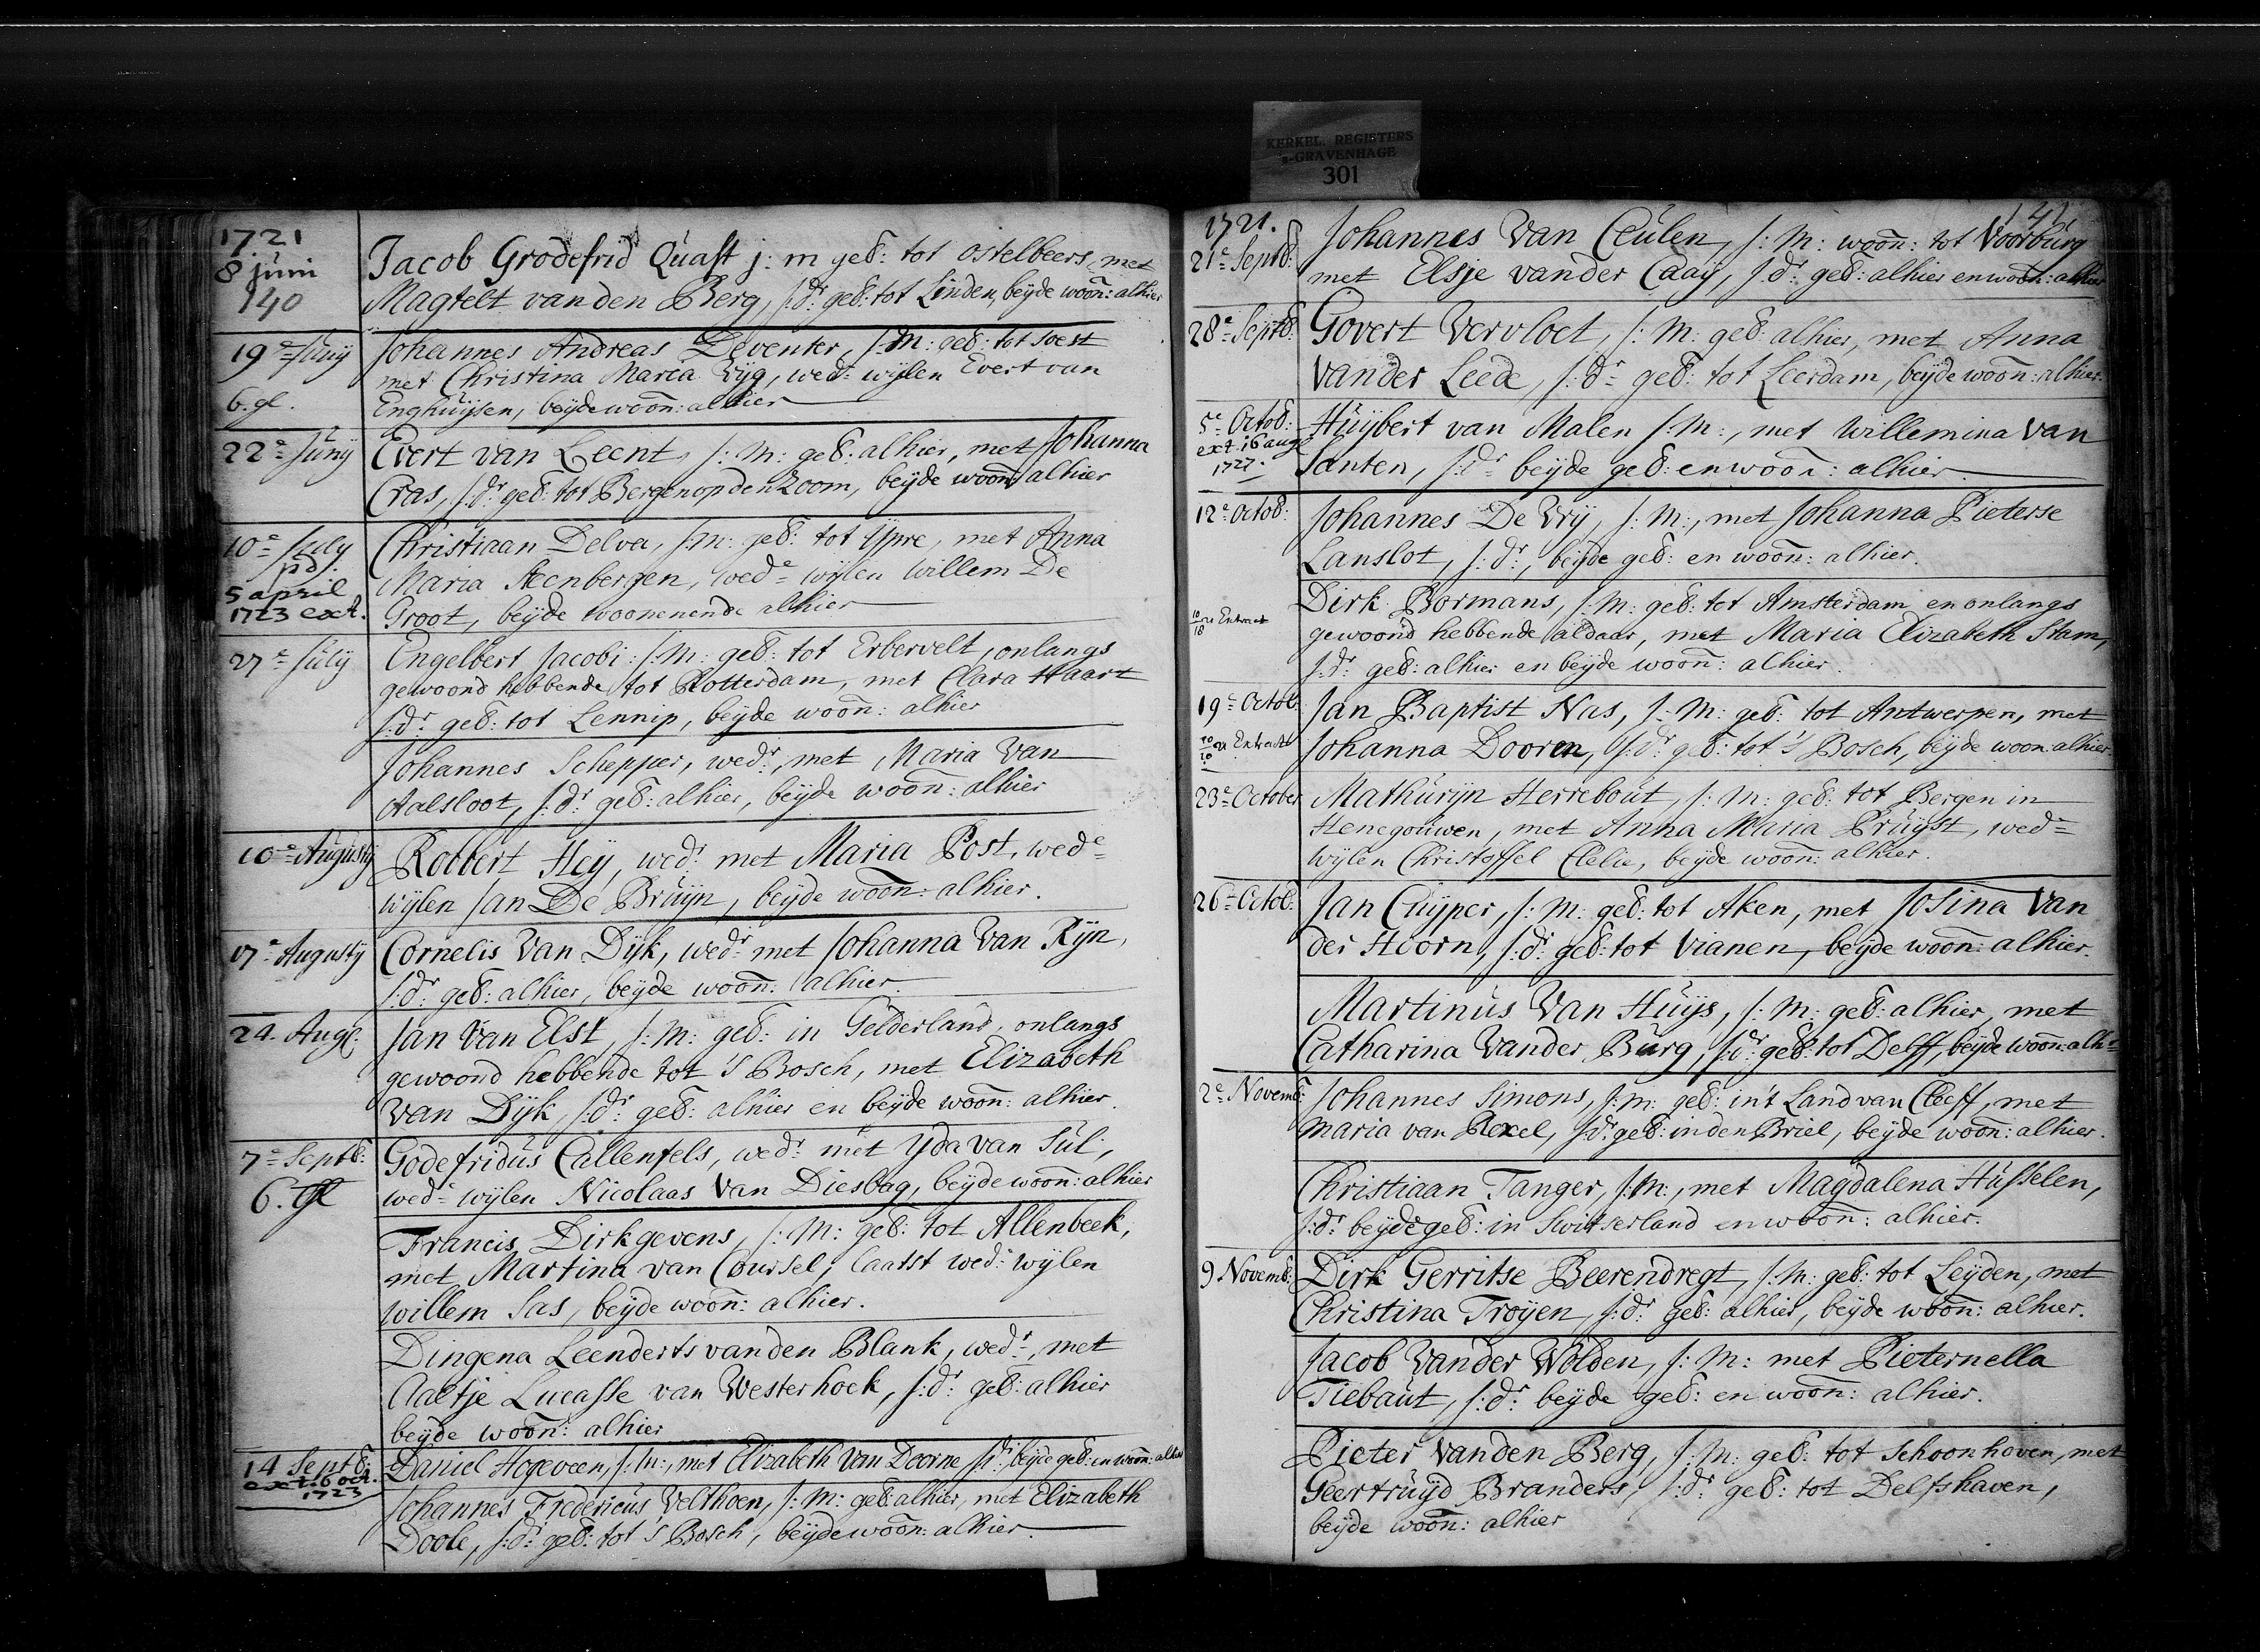 KERKEL. REGISTERS
s-GRAVENHAGE
301
1721
8 juni
140
Jacob Grodefrid Quast j: m geb: tot ostelbeers, met
Magtelt van den Berg, j:dr: geb: tot Linden, beÿde woon: alhier
19e Junÿ
6. gl.
Johannes Andreas Deventer, j:M: geb: tot soest
met Christina Maria Vÿg, wede wÿlen Evert van
Enghuÿsen, beÿde woon: alhier
22e Junÿ
Evert van Leent, j: M: geb: alhier, met Johanna
Cras, j:dr geb: tot Bergenopden Zoom, beÿde woon: alhier
10e July
pd.
5 april
1723 ext.
Christiaan Delva, j:m: geb: tot Ypre, met Anna
Maria Steenbergen, wede wÿlen Willem De
Groot, beÿde woonenende alhier
27e Julÿ
Engelbert Jacobi j:M: geb: tot Erbervelt, onlangs
gewoond hebbende tot Rotterdam, met Clara Haart
j:dr geb: tot Lennip, beÿde woon: alhier
Johannes Schepper, wedr, met Maria Van
Aalsloot, j:dr: geb: alhier, beÿde woon: alhier
10e Augustÿ
Robbert Heÿ, wedr met Maria Post, wede
wÿlen Jan De Bruÿn, beÿde woon: alhier.
17e Augustÿ
Cornelis Van Dÿk, wedr met Johanna Van Rÿn,
j:dr: geb: alhier, beÿde woon: alhier.
24. Aug:
Jan Van Elst, j:M: geb: in Gelderland, onlangs
gewoond hebbende tot 's Bosch, met Elizabeth
Van Dÿk, j:dr: geb: alhier en beÿde woon: alhier.
7e Septb:
6. gl
Godefridus Callenfels, wedr met Yda van Sul,
wede wÿlen Nicolaas Van Diesbag, beÿde woon: alhier
Francis Dirkgevens, j: M: geb: tot Allenbeek,
met Martina van Coursel, laatst wed: wÿlen
Willem Sas, beÿde woon: alhier.
Dingena Leenderts vanden Blank, wedr, met
Aaltje Lucasse van Westerhoek, j:dr: geb: alhier
beÿde woon: alhier
14 Septb:
ext. 6 oct.
1723
Daniel Hogeveen, j:m:, met Elizabeth Van Doorne j:dr: beÿde geb: en woon: alhier
Johannes Fredericus Velthoen, j:M: geb: alhier, met Elizabeth
Doole, j:dr: geb: tot 's Bosch, beÿde woon: alhier.
1721.
141
21e Septb:
Johannes Van Ceulen, j: M: woon: tot Voorburg
met Elsje vander Caaÿ, j:dr: geb: alhier en woon: alhier
28e Septb:
Govert Vervloet, j: M: geb: alhier, met Anna
Vander Leede, j:dr geb: tot Leerdam, beÿde woon: alhier.
5e Octob:
ext. 16 aug
1727.
Huÿbert van Malen j:M:, met Willemina Van
Santen, j:dr beÿde geb: en woon: alhier
12e Octob:
Johannes De Vrÿ, j:M:, met Johanna Pieterse
Lanslot, j:dr:, beÿde geb: en woon: alhier.
10/18 21 Extract
Dirk Bormans, j:M: geb: tot Amsterdam en onlangs
gewoond hebbende aldaar, met Maria Elizabeth Stam,
j:dr: geb: alhier en beÿde woon: alhier.
19e Octob:
21 Extract
Jan Baptist Nas, j: M: geb: tot Antwerpen, met
Johanna Dooren, j:dr: geb: tot 's Bosch, beÿde woon: alhier
23e October
Mathurÿn Herrebout, j: M: geb: tot Bergen in
Henegouwen, met Anna Maria Pruÿst, wede
wÿlen Christoffel Clelie, beÿde woon: alhier.
26e Octob:
Jan Cuÿper, j: M: geb: tot Aken, met Josina Van
der Hoorn, j:dr: geb: tot Vianen, beÿde woon: alhier.
Martinus Van Huÿs, j: M: geb: alhier, met
Catharina Vander Burg, j:dr: geb: tot Delff, beÿde woon: alhr
2e Novemb:
Johannes Simons, j:m: geb: in't Land van Cleeff, met
Maria van Rexel, j:dr: geb: in den Briel, beÿde woon: alhier.
Christiaan Tanger, j:M:, met Magdalena Husselen,
j:dr beÿde geb: in Switserland en woon: alhier.
9 Novemb:
Dirk Gerritse Beerendregt, j:M: geb: tot Leÿden, met
Christina Troÿen, j:dr: geb: alhier, beÿde woon: alhier.
Jacob Vander Wolden, j:M: met Pieternella
Tiebaut, j:dr: beÿde geb: en woon: alhier.
Pieter Vanden Berg, j:M: geb: tot Schoonhoven, met
Geertruÿd Branders, j:dr: geb: tot Delfshaven,
beÿde woon: alhier